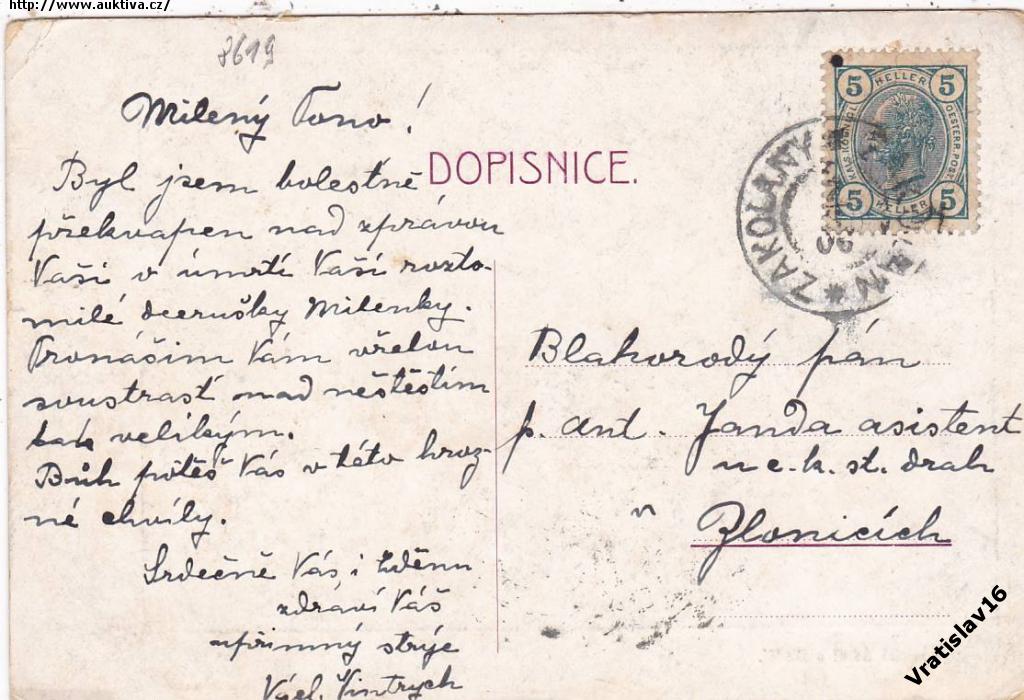 http://www.auktiva.cz/
8619
Milený Tono!
DOPISNICE.
Byl jsem bolestně
překvapen nad zprávou
Vaši o úmrtí Vaší rozto-
milé dcerušky Milenky.
Pronáším Vám vřelou
soustrast nad neštěstím
tak velikým.
Bůh potěš Vás v této hroz-
né chvíly.
Srdečně Vás i Zděnu
zdraví Váš
upřímný strýc
Václ. Vintrych
5 HELLER 5
OESTERR. POST
5 HELLER 5
ZAKOLANY
06
Blahorodý pán
p. Ant. Janda asistent
u c. k. st. drah
v
Zlonicích
Vratislav16